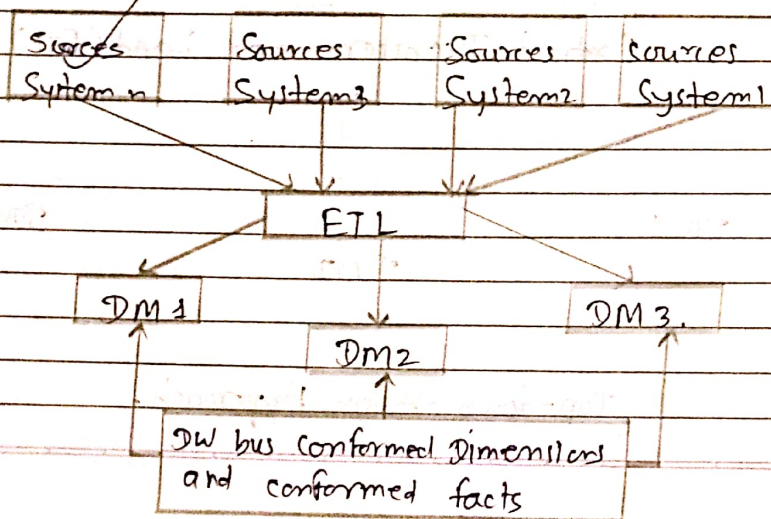 Sources
System n
Sources
System3
Sources
System2
sources
System1
ETL
DM 1
DM 3.
DM2
DW bus conformed Dimensions
and conformed facts